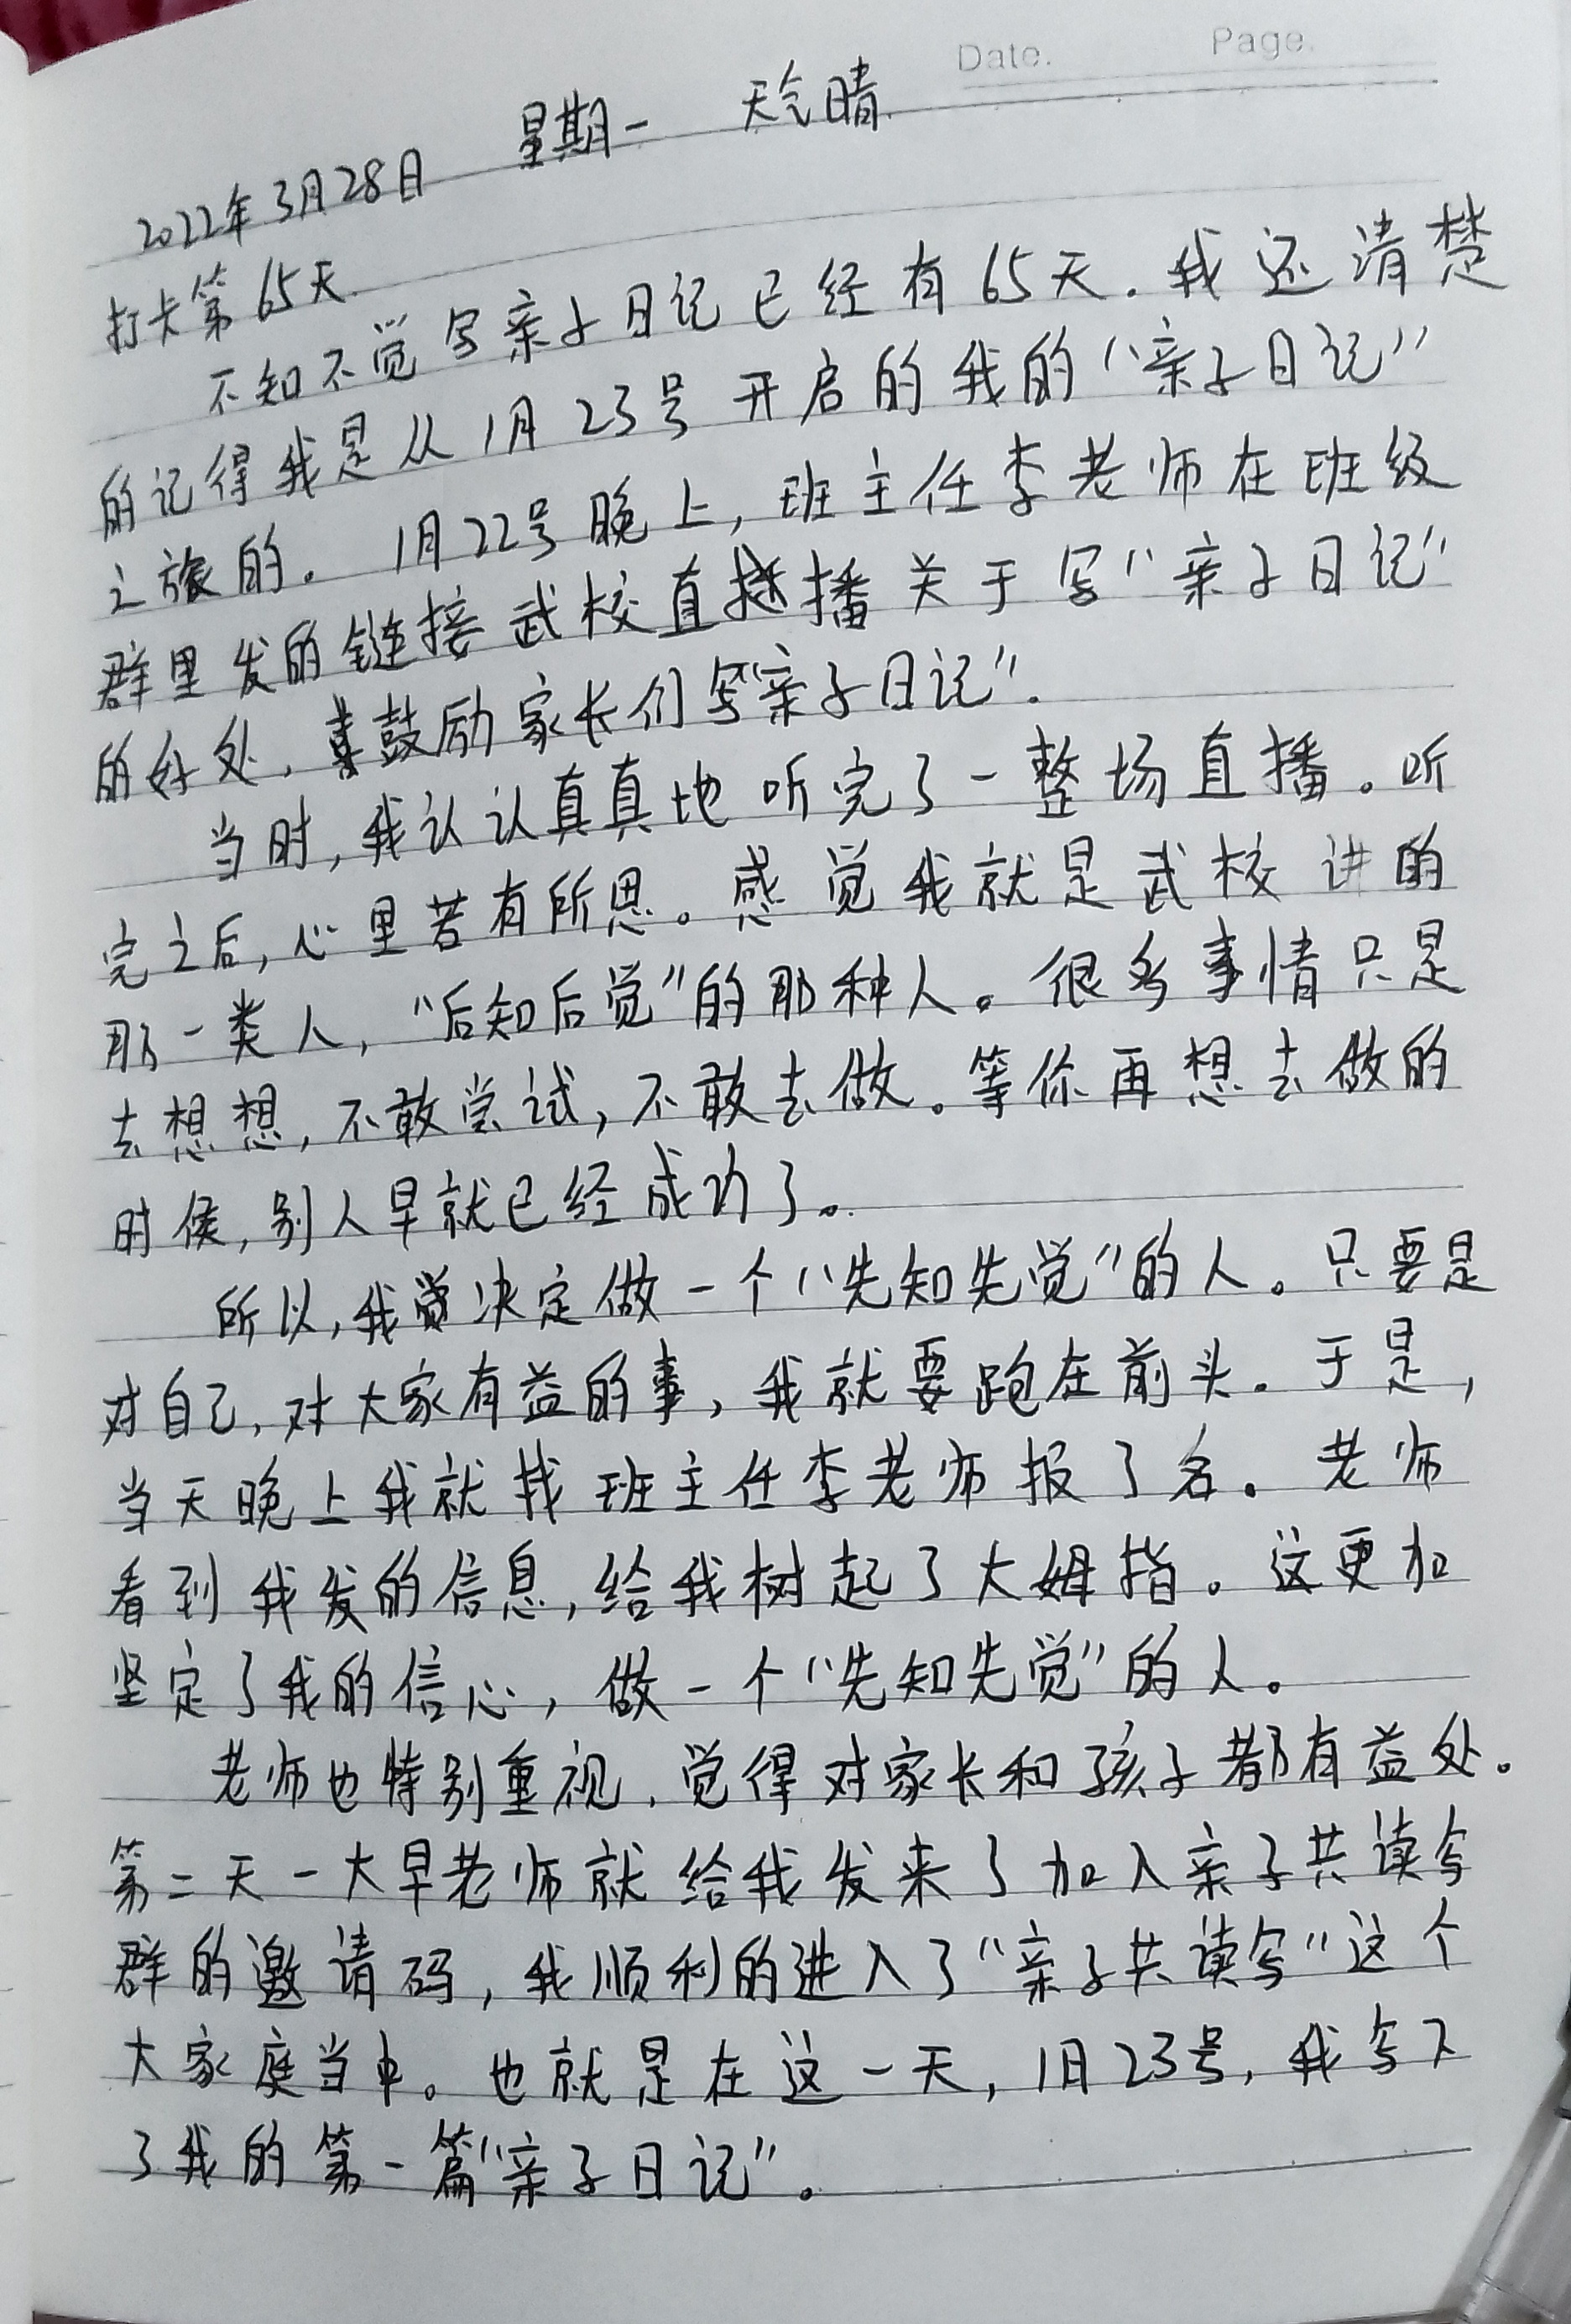 Date.    Page.
2022年3月28日 星期一 天气晴
打卡第65天.
不知不觉写亲子日记已经有65天.我还清楚
的记得我是从1月23号开启的我的“亲子日记”
之旅的。1月22号晚上,班主任李老师在班级
群里发的链接武校直播关于写“亲子日记”
的好处,鼓励家长们写“亲子日记”.
当时,我认认真真地听完了一整场直播。听
完之后,心里若有所思。感觉我就是武校讲的
那一类人,“后知后觉”的那种人。很多事情只是
去想想,不敢尝试,不敢去做。等你再想去做的
时侯,别人早就已经成功了。
所以,我决定做一个“先知先觉”的人。只要是
对自己,对大家有益的事,我就要跑在前头.于是,
当天晚上我就找班主任李老师报了名。老师
看到我发的信息,给我树起了大姆指。这更加
坚定了我的信心,做一个“先知先觉”的人。
老师也特别重视,觉得对家长和孩子都有益处。
第二天一大早老师就给我发来了加入亲子共读写
群的邀请码,我顺利的进入了“亲子共读写”这个
大家庭当中。也就是在这一天,1月23号,我写下
了我的第一篇“亲子日记”。